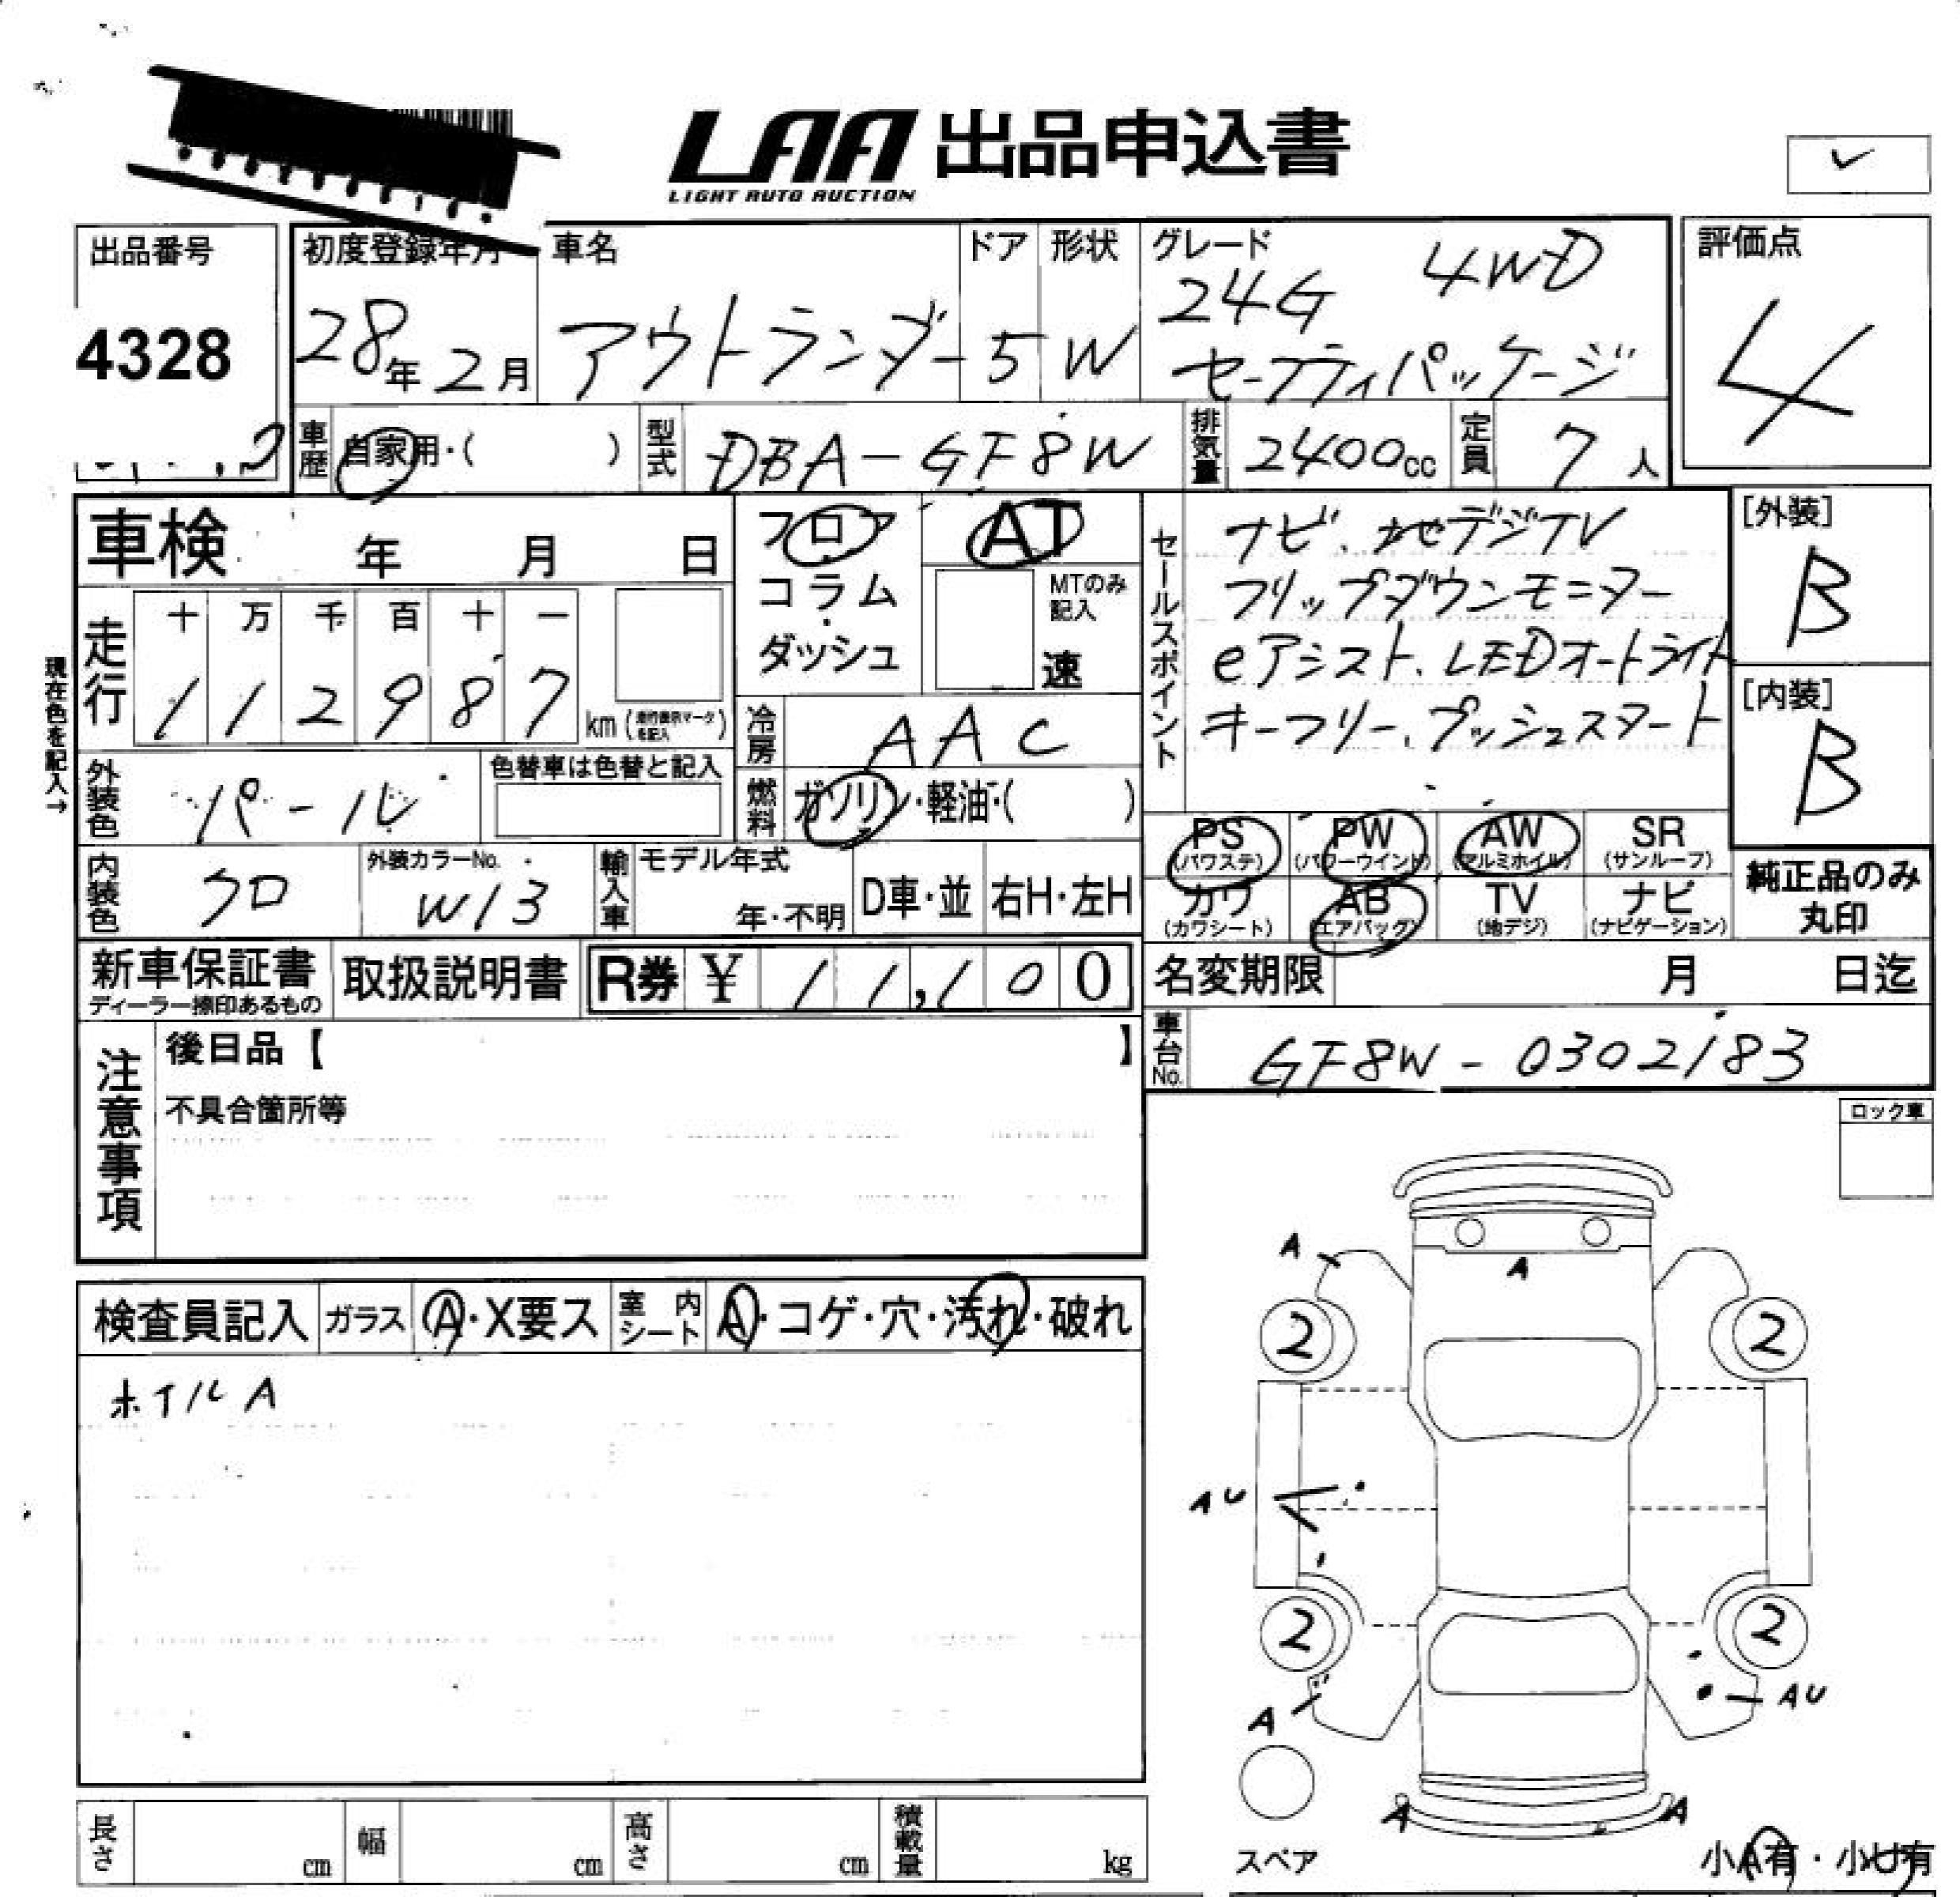 LAA 出品申込書
LIGHT AUTO AUCTION
出品番号
4328
初度登録年月
28年2月
車名
アウトランダー
ドア
5
形状
W
グレード
24G 4WD
セーフティパッケージ
評価点
4
車歴
自家用・( )
型式
DBA-GF8W
排気量
2400cc
定員
7人
車検 年 月 日
フロア
コラム
・
ダッシュ
AT
MTのみ
記入
速
セールスポイント
ナビ、地デジTV
フリップダウンモニター
eアシスト、LEDオートライト
キーフリー、プッシュスタート
[外装]
B
[内装]
B
現在色を記入→
走行
十 万 千 百 十 一
1 1 2 9 8 7
km (走行表示マークを記入)
冷房
AAC
外装色
パール
色替車は色替と記入
燃料
ガソリン・軽油・( )
内装色
クロ
外装カラーNo.
W13
輸入車
モデル年式
年・不明
D車・並
右H・左H
PS
(パワステ)
PW
(パワーウインド)
AW
(アルミホイル)
SR
(サンルーフ)
カワ
(カワシート)
AB
(エアバック)
TV
(地デジ)
ナビ
(ナビゲーション)
純正品のみ
丸印
新車保証書
ディーラー捺印あるもの
取扱説明書
R券 ¥ 11,100
名変期限 月 日迄
車台No.
GF8W-0302183
注意事項
後日品【 】
不具合箇所等
ロック車
検査員記入
ガラス
A・X要ス
室内シート
A・コゲ・穴・汚れ・破れ
ホイルA
A
A
2
2
AU
2
2
A
AU
A
A
スペア
小A有・小U有
長さ cm
幅 cm
高さ cm
積載量 kg